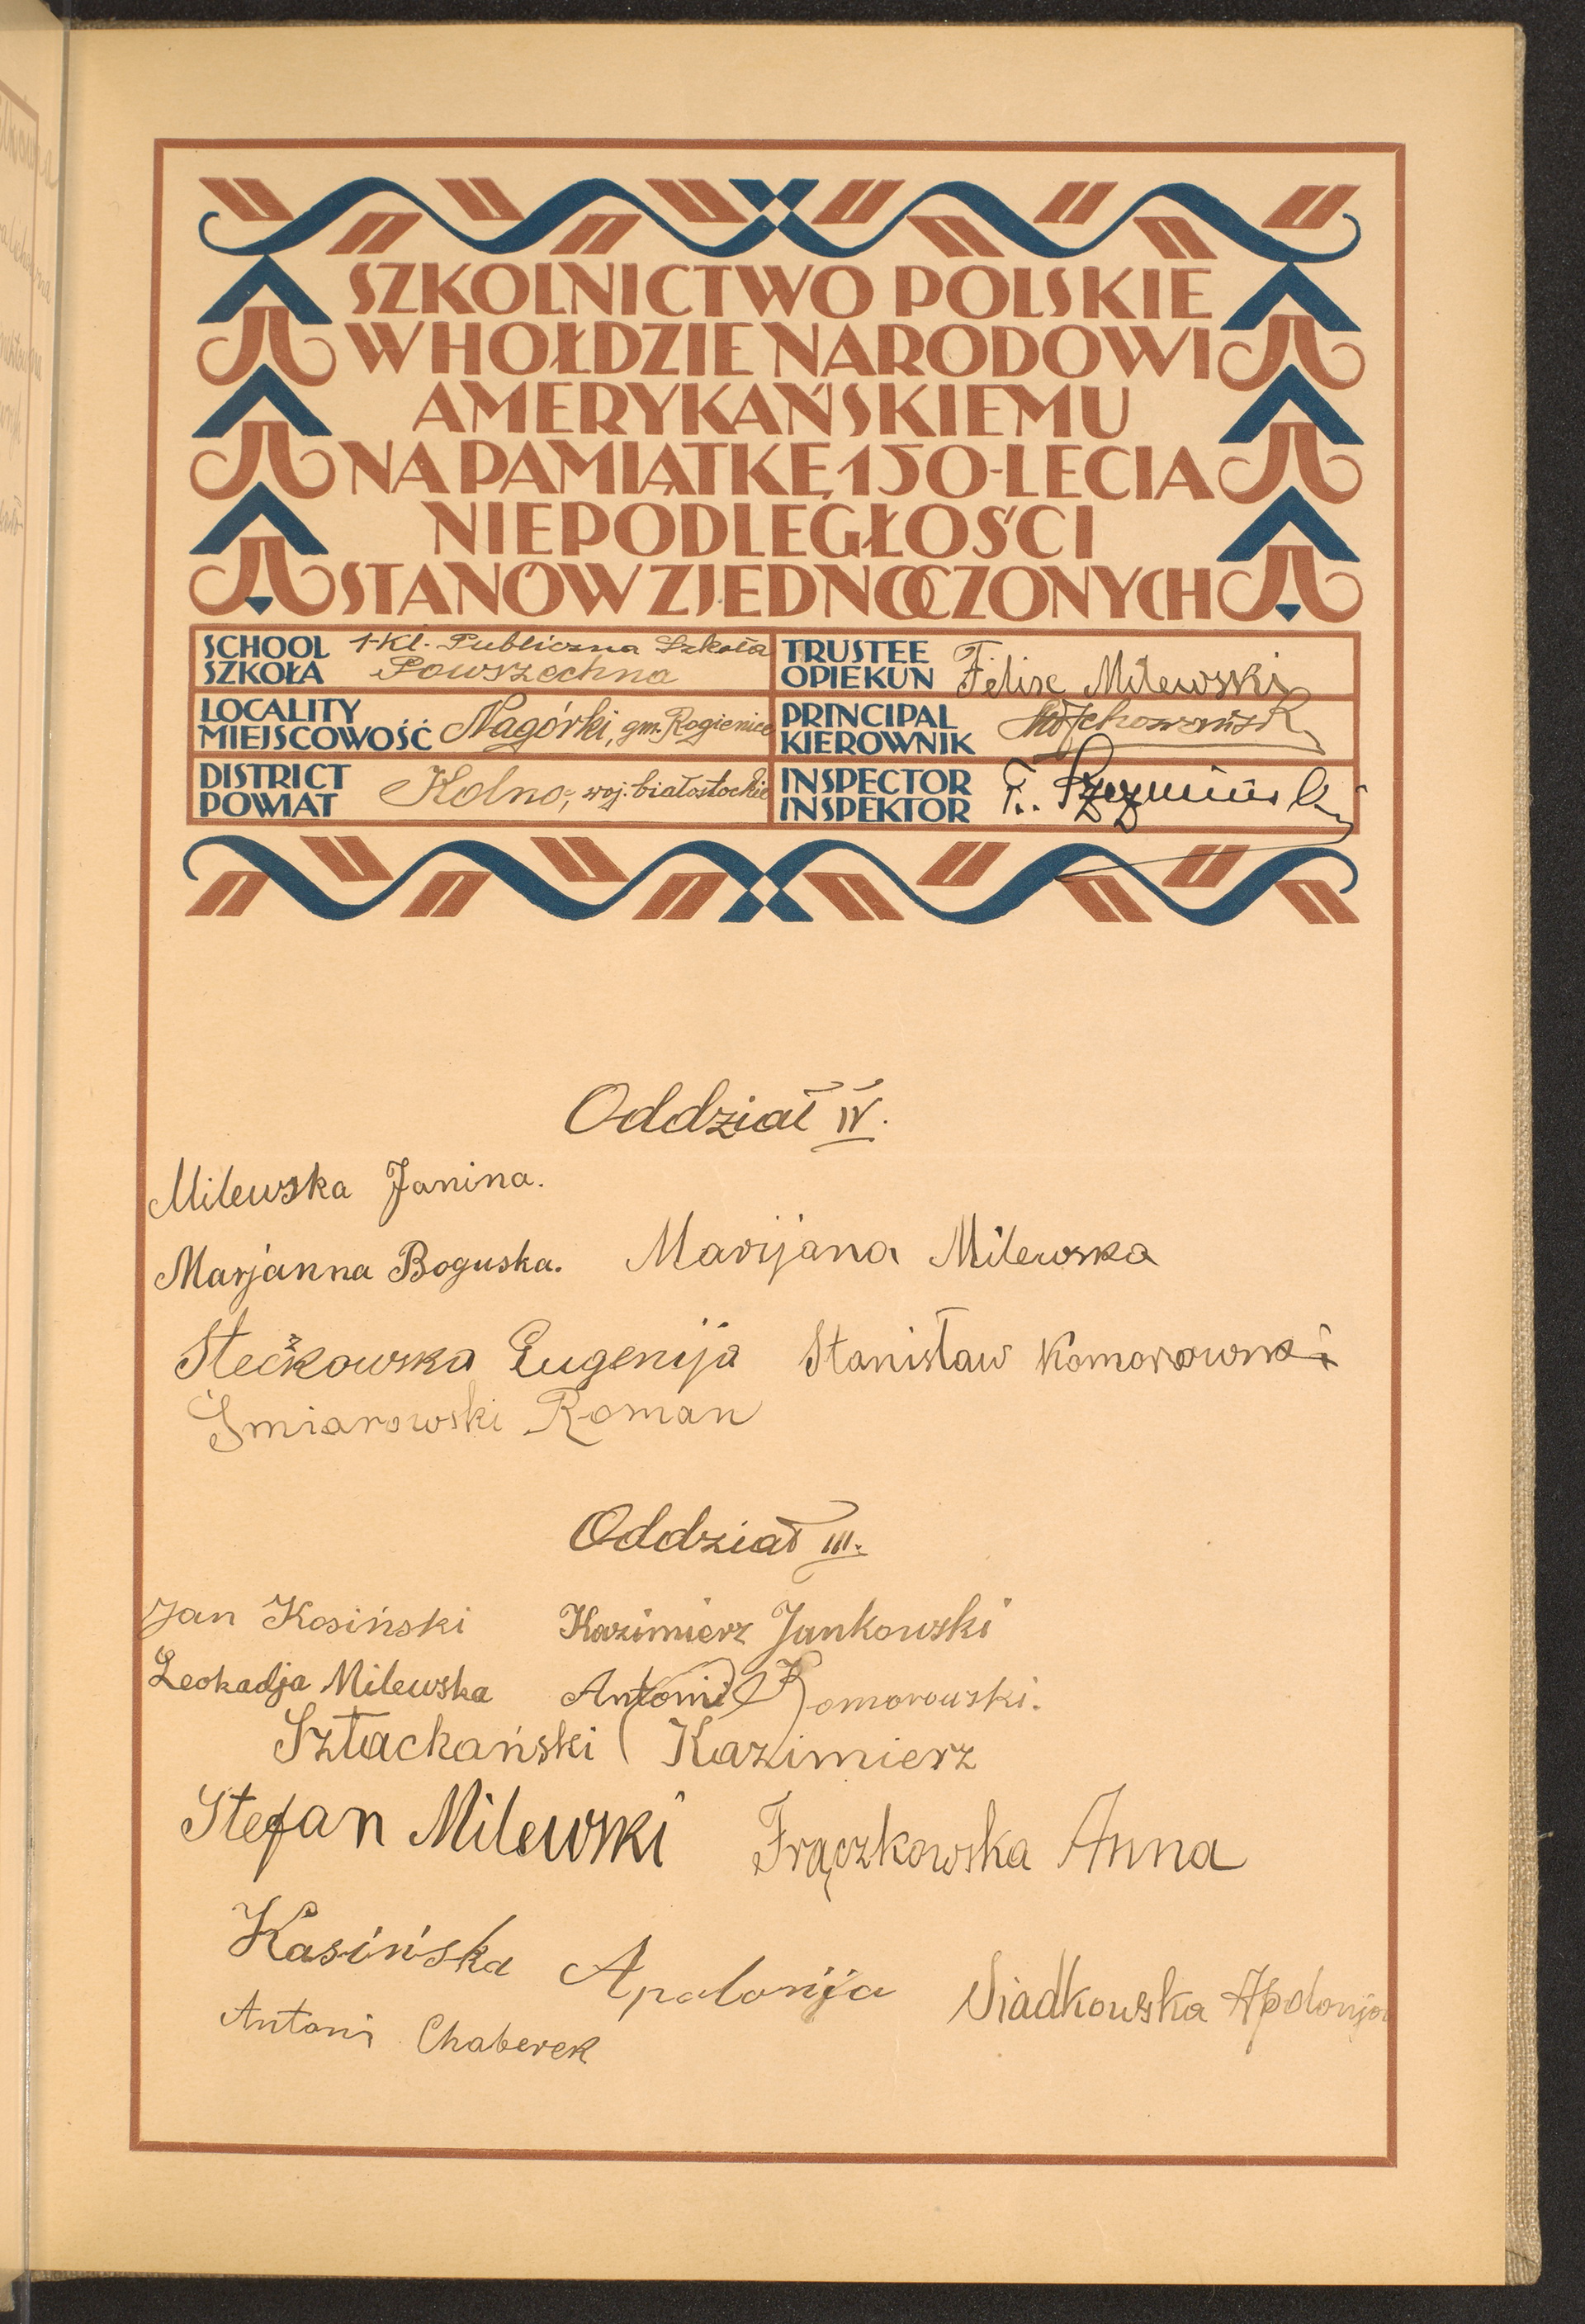 SZKOLNICTWO POLSKIE
W HOŁDZIE NARODOWI
AMERYKAŃSKIEMU
NA PAMIĄTKĘ 150-LECIA
NIEPODLEGŁOŚCI
STANÓW ZJEDNOCZONYCH
SCHOOL
SZKOŁA
1-Kl. Publiczna Szkoła
Powszechna
TRUSTEE
OPIEKUN
Felixe Milewski
LOCALITY
MIEJSCOWOŚĆ
Nagórki, gm. Rogienice
PRINCIPAL
KIEROWNIK
DISTRICT
POWIAT
Kolno, woj. białostockie
INSPECTOR
INSPEKTOR
Oddział IV.
Milewska Janina.
Marjanna Boguska. Marijana Milewska
Steckowska Eugenija Stanisław Komorowski
Śmiarowski Roman
Oddział III.
Jan Kosiński Kazimierz Jankowski
Leokadja Milewska Antoni Komorowski.
Sztachański Kazimierz
Stefan Milewski Frączkowska Anna
Kasińska Apalonija Siadkowska Apolonja
Antoni Chaberek